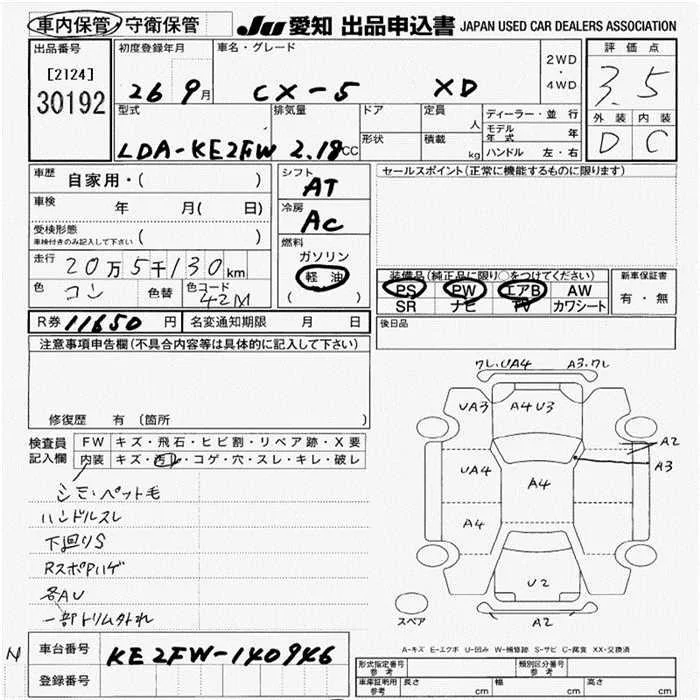 車内保管・守衛保管
JU 愛知 出品申込書 JAPAN USED CAR DEALERS ASSOCIATION
出品番号
[2124]
30192
初度登録年月
26 9月
車名・グレード
CX-5 XD
2WD
・
4WD
評価点
3.5
外装 内装
D C
型式
LDA-KE2FW
排気量
2.19CC
ドア
形状
定員
人
積載
kg
ディーラー・並行
モデル年式 年
ハンドル 左・右
車歴
自家用・( )
車検 年 月( 日)
受検形態
車検付きのみ記入して下さい ( )
走行
20万5千130km
色
コン
色替
色コード
42M
シフト
AT
冷房
AC
燃料
ガソリン
軽油
( )
セールスポイント(正常に機能するものに限ります)
装備品(純正品に限り○をつけてください)
PS PW エアB AW
SR ナビ TV カワシート
新車保証書
有・無
R券 11650円
名変通知期限 月 日
後日品
注意事項申告欄(不具合内容等は具体的に記入して下さい)
修復歴 有(箇所 )
検査員
記入欄
FW キズ・飛石・ヒビ割・リペア跡・X要
内装 キズ・汚レ・コゲ・穴・スレ・キレ・破レ
シミ・ペット毛
ハンドルスレ
下廻りS
RスポPハゲ
各AU
一部トリムハズレ
ワレ.UA4 A3.ワレ
UA3 A4U3
A2
A3
UA4 A4
A4
U2
A2
スペア
A-キズ E-エクボ U-凹み W-補修跡 S-サビ C-腐食 XX-交換済
N
車台番号
KE2FW-140946
登録番号
形式指定番号
参考
類別区分番号
参考
車庫証明用
参考
長さ cm
幅 cm
高さ cm